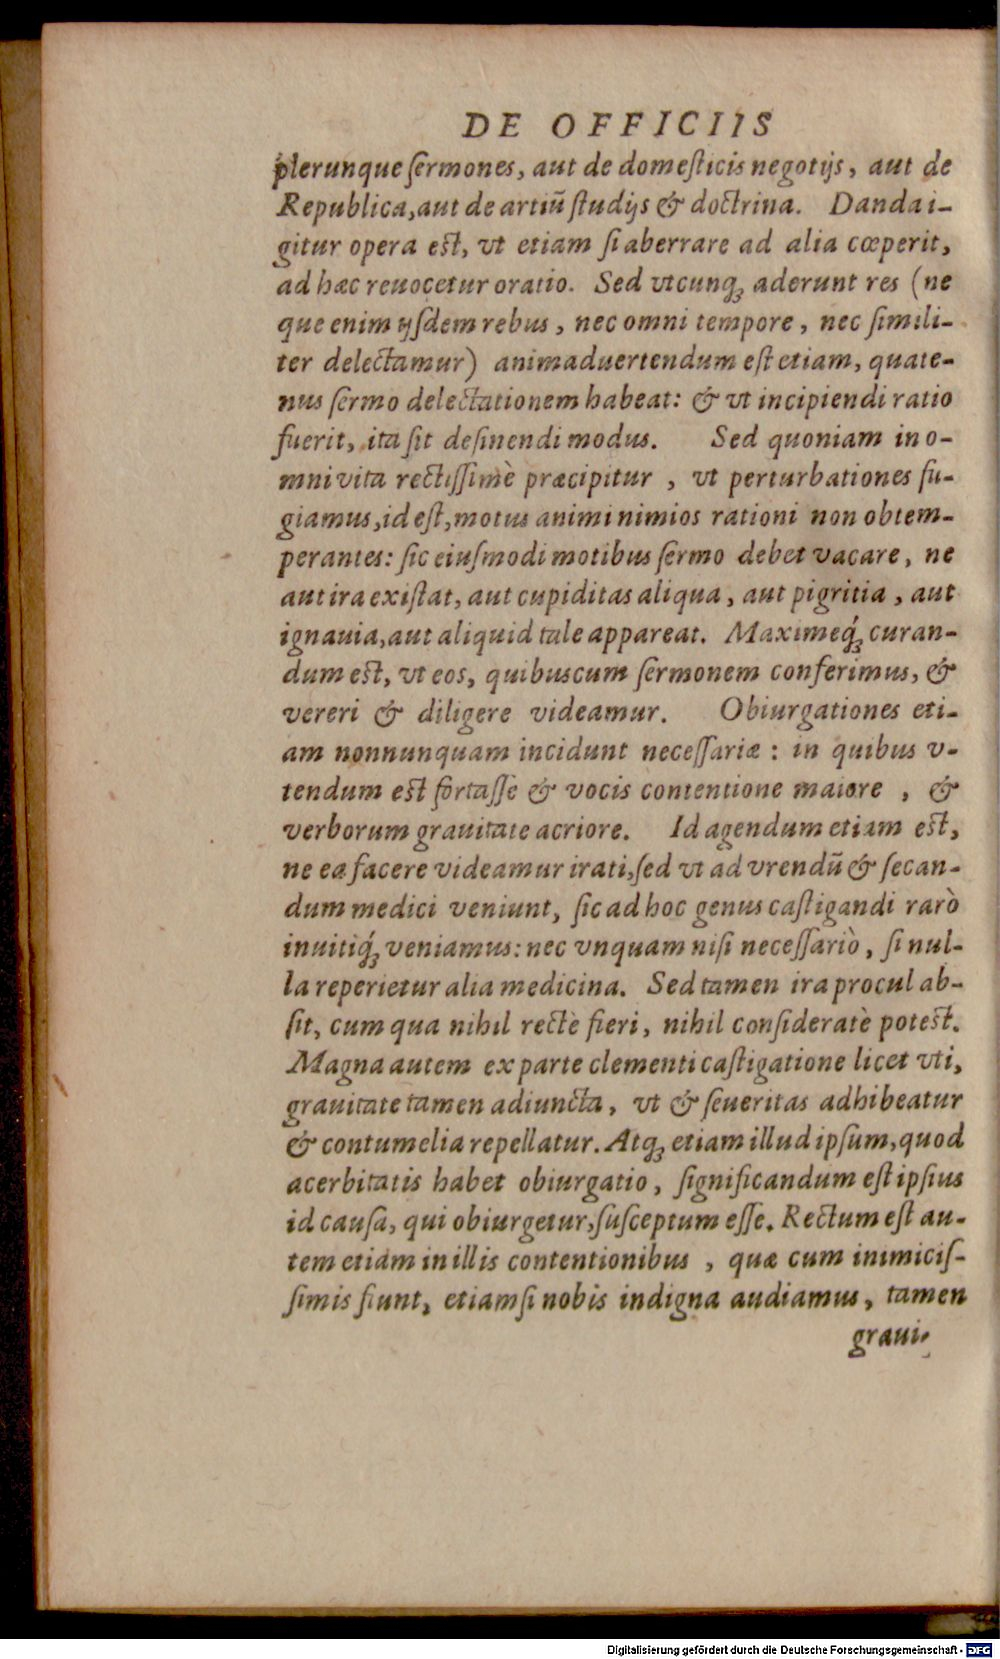 DE OFFICIIS
plerunque ſermones, aut de domeſticis negotijs, aut de
Republica, aut de artiũ ſtudijs & doctrina. Danda i-
gitur opera eſt, vt etiam ſi aberrare ad alia cœperit,
ad hæc reuocetur oratio. Sed vtcunq; aderunt res (ne
que enim ijſdem rebus, nec omni tempore, nec ſimili-
ter delectamur) animaduertendum eſt etiam, quate-
nus ſermo delectationem habeat: & vt incipiendi ratio
fuerit, ita ſit deſinendi modus. Sed quoniam in o-
mni vita rectiſſimè præcipitur, vt perturbationes fu-
giamus, id eſt, motus animi nimios rationi non obtem-
perantes: ſic eiuſmodi motibus ſermo debet vacare, ne
aut ira exiſtat, aut cupiditas aliqua, aut pigritia, aut
ignauia, aut aliquid tale appareat. Maximeq́; curan-
dum eſt, vt eos, quibuscum ſermonem conferimus, &
vereri & diligere videamur. Obiurgationes eti-
am nonnunquam incidunt neceſſariæ: in quibus v-
tendum eſt fortaſſe & vocis contentione maiore, &
verborum grauitate acriore. Id agendum etiam eſt,
ne ea facere videamur irati, ſed vt ad vrendũ & ſecan-
dum medici veniunt, ſic ad hoc genus caſtigandi rarò
inuitiq́; veniamus: nec vnquam niſi neceſſariò, ſi nul-
la reperietur alia medicina. Sed tamen ira procul ab-
ſit, cum qua nihil rectè fieri, nihil conſideratè poteſt.
Magna autem ex parte clementi caſtigatione licet vti,
grauitate tamen adiuncta, vt & ſeueritas adhibeatur
& contumelia repellatur. Atq; etiam illud ipſum, quod
acerbitatis habet obiurgatio, ſignificandum eſt ipſius
id cauſa, qui obiurgetur, ſuſceptum eſſe. Rectum eſt au-
tem etiam in illis contentionibus, quæ cum inimiciſ-
ſimis fiunt, etiamſi nobis indigna audiamus, tamen
graui-
Digitalisierung gefördert durch die Deutsche Forschungsgemeinschaft - DFG